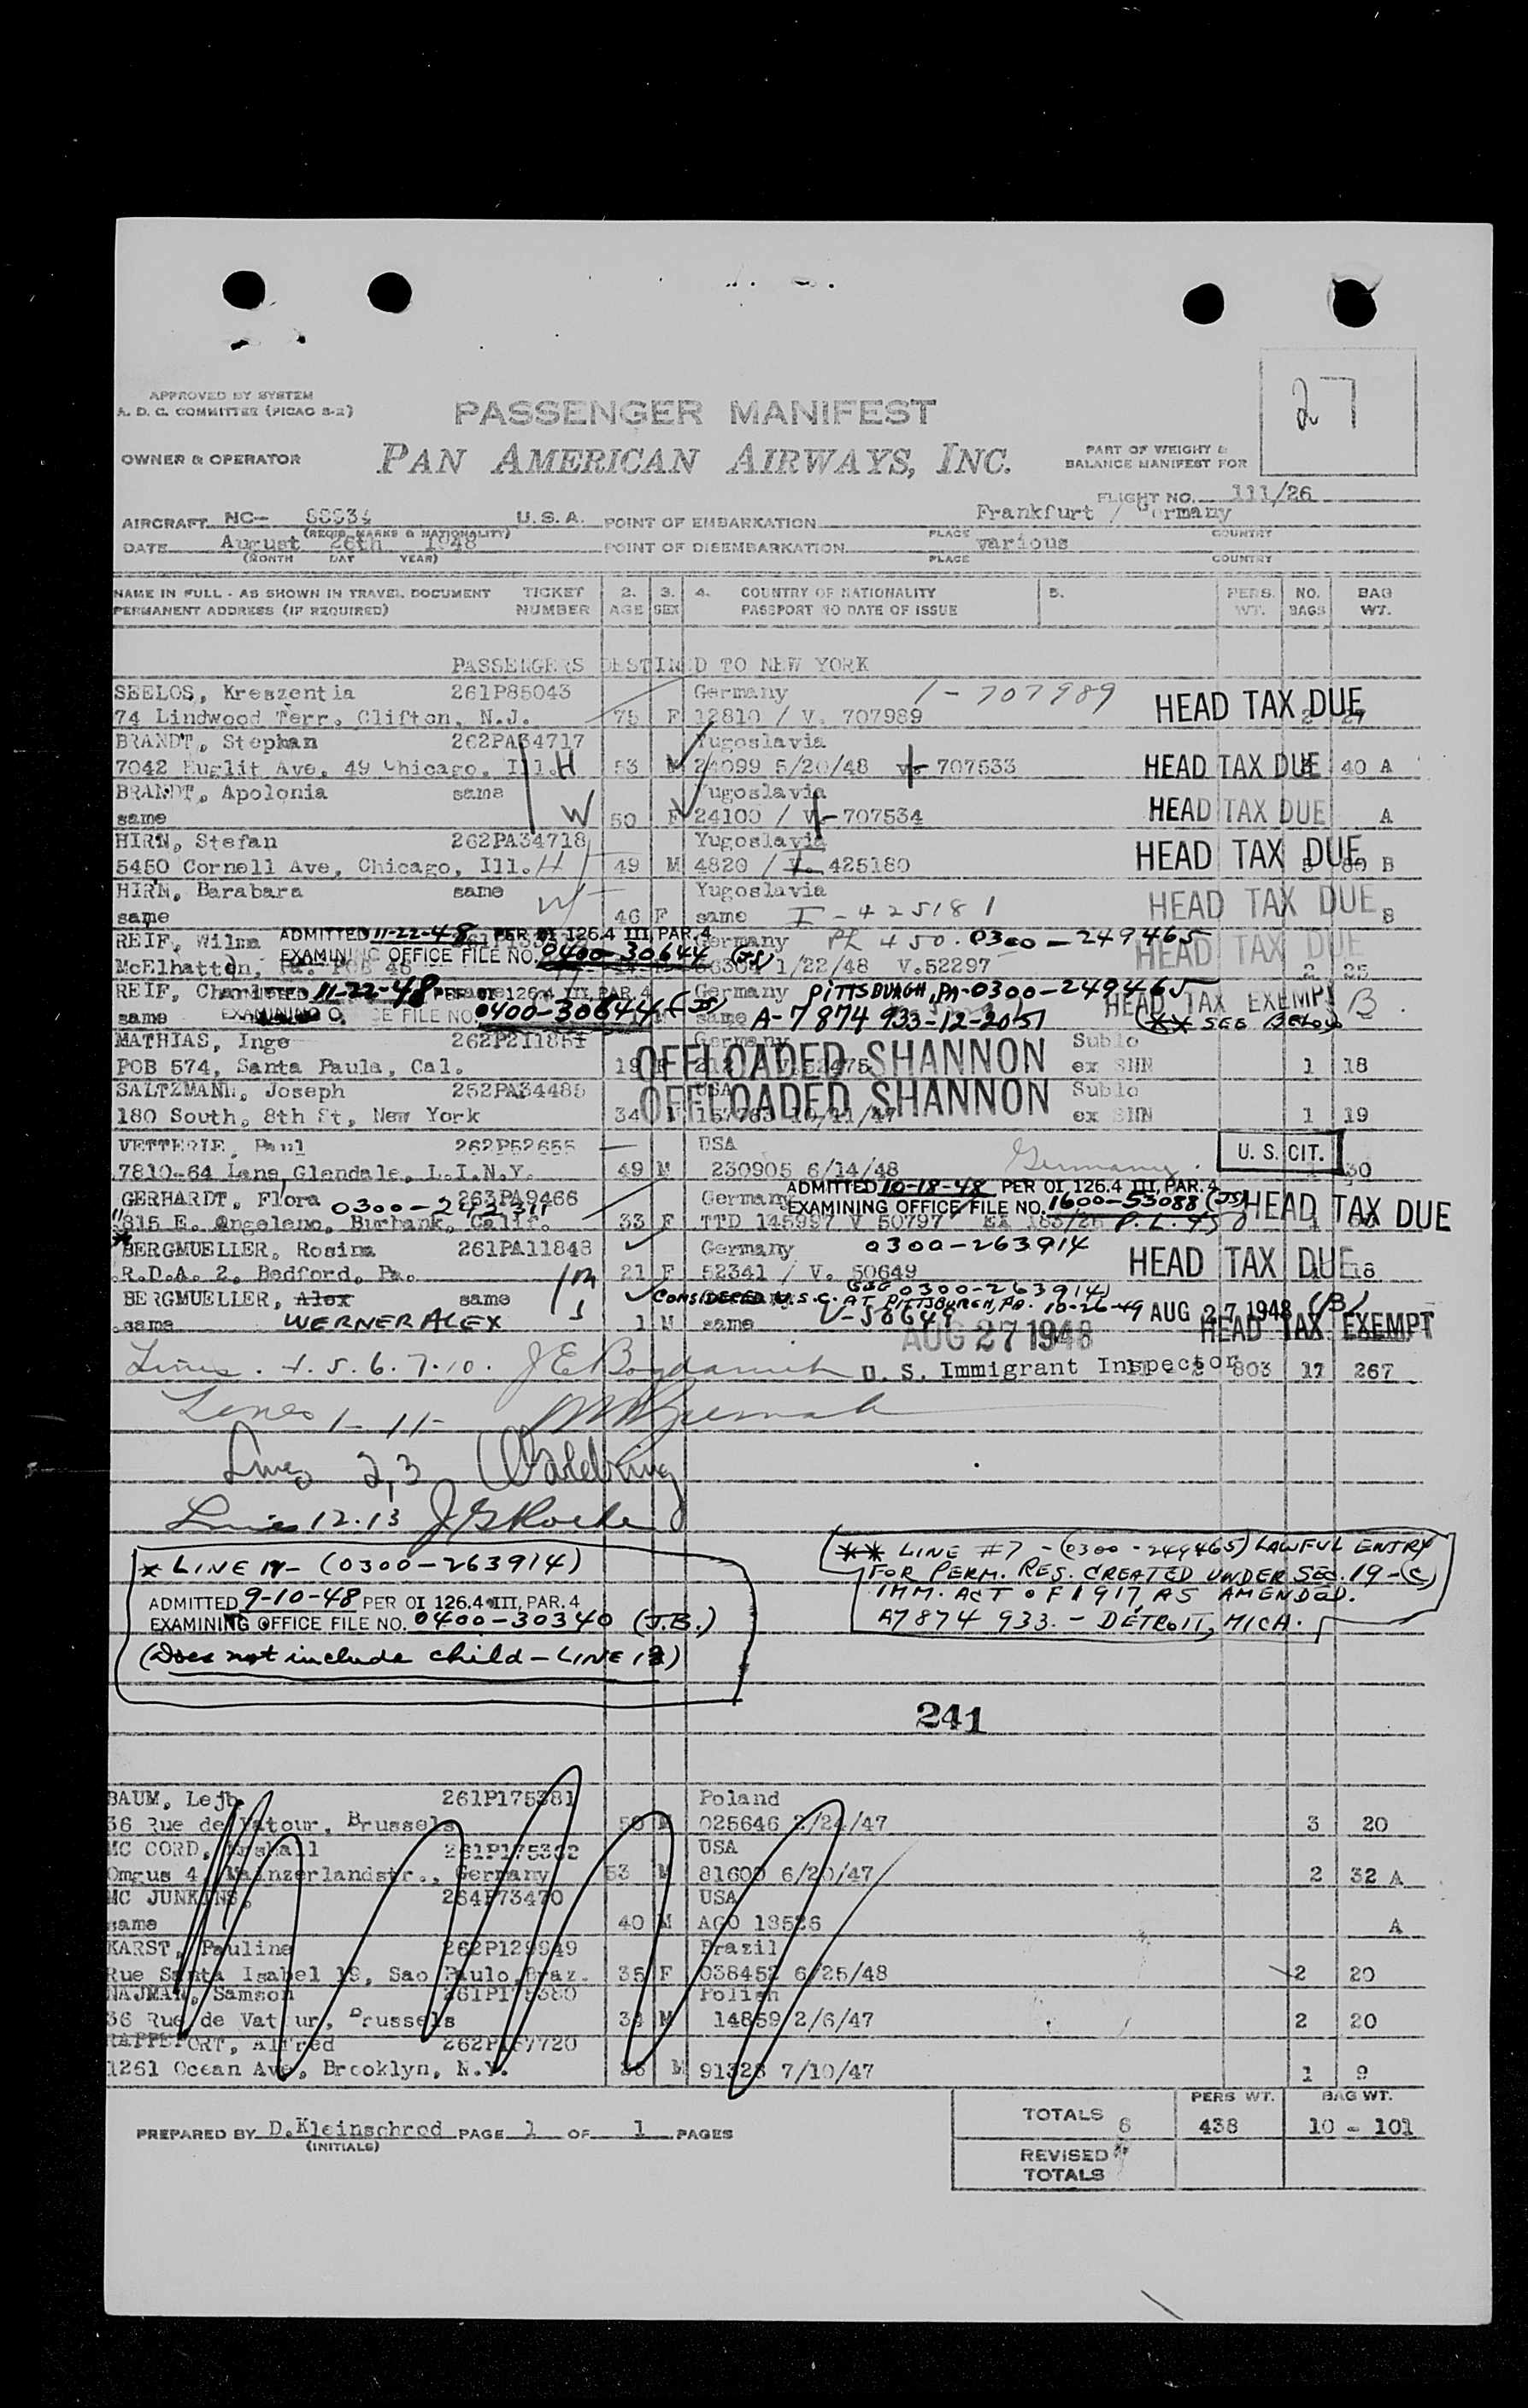 27
APPROVED BY SYSTEM
A. D. C. COMMITTEE (PICAO S-2)
PASSENGER MANIFEST
OWNER & OPERATOR
PAN AMERICAN AIRWAYS, INC.
PART OF WEIGHT &
BALANCE MANIFEST FOR
FLIGHT NO. 111/26
AIRCRAFT NC- U.S.A. POINT OF EMBARKATION Frankfurt / Germany
(REGIS. MARKS & NATIONALITY) PLACE COUNTRY
DATE August 26th 1948 POINT OF DISEMBARKATION various
(MONTH DAY YEAR) PLACE COUNTRY
NAME IN FULL - AS SHOWN IN TRAVEL DOCUMENT TICKET 2. 3. 4. COUNTRY OF NATIONALITY 5. PERS. NO. BAG
PERMANENT ADDRESS (IF REQUIRED) NUMBER AGE SEX PASSPORT NO DATE OF ISSUE WT. BAGS WT.
PASSENGERS DESTINED TO NEW YORK
SEELOS, Kreszentia 261P85043 Germany 1-707989 HEAD TAX DUE
74 Lindwood Terr. Clifton, N.J. 75 F 12810 / V. 707989 2 27
BRANDT, Stephan 262PA34717 Yugoslavia
7042 Euglit Ave. 49 Chicago, Ill. H 53 M 24099 5/20/48 707533 HEAD TAX DUE 40 A
BRANDT, Apolonia same Yugoslavia HEAD TAX DUE
same W 50 F 24100 / 707534 A
HIRN, Stefan 262PA34718 Yugoslavia HEAD TAX DUE
5450 Cornell Ave, Chicago, Ill. H 49 M 4820 / I. 425180 B
HIRN, Barabara same Yugoslavia HEAD TAX DUE
same W 46 F same I-425181 B
REIF, Wilma ADMITTED 11-22-48 PER OI 126.4 III, PAR. 4 Germany PL 450. 0300-249465 HEAD TAX DUE
McElhatten, Pa. POB 45 EXAMINING OFFICE FILE NO. 0400-30644 (JS) 1/22/48 V.52297 2 25
REIF, ADMITTED 11-22-48 PER OI 126.4 III, PAR. 4 Germany PITTSBURGH, PA-0300-249465 HEAD TAX EXEMPT B
same EXAMINING OFFICE FILE NO. 0400-30644 (JS) same A-7 874 933-12-20-51 (** SEE BELOW
MATHIAS, Inge Germany Sublo
POB 574, Santa Paula, Cal. 19 F OFFLOADED SHANNON ex SNN 1 18
SALTZMANN, Joseph 252PA34485 USA Sublo
180 South, 8th St, New York 34 OFFLOADED SHANNON 10/11/47 ex SNN 1 19
VETTERIE, Paul 262P52655 USA U. S. CIT.
7810-64 Lane, Glendale, L.I.N.Y. 49 M 230905 6/14/48 Germany. 1 30
GERHARDT, Flora 263PA9466 Germany ADMITTED 10-18-48 PER OI 126.4 III, PAR. 4
0300-242311 EXAMINING OFFICE FILE NO. 1600-53088 (JS) HEAD TAX DUE
815 E. Angeleno, Burbank, Calif. 33 F TTD 145997 V 50797 P.L. 450
* BERGMUELLER, Rosina 261PA11848 Germany 0300-263914 HEAD TAX DUE
R.D.A. 2, Bedford, Pa. 21 F 52341 / V. 50649 18
BERGMUELLER, Alex same SEE 0300-263914)
CONSIDERED U.S.C. AT PITTSBURGH, PA. 10-26-49 AUG 27 1948 (B)
same WERNER ALEX 1 M same V-50649 AUG 27 1948 HEAD TAX EXEMPT
Lines. 4. 5. 6. 7. 10. U. S. Immigrant Inspector 803 17 267
Lines 1-11-
Lines 2,3
Lines 12.13
* LINE (0300-263914)
ADMITTED 9-10-48 PER OI 126.4 III, PAR. 4
EXAMINING OFFICE FILE NO. 0400-30340 (J.B.)
(Does not include child-LINE 13)
** LINE #7-(0300-249465) LAWFUL ENTRY
FOR PERM. RES. CREATED UNDER SEC. 19-(C)
IMM. ACT OF 1917, AS AMENDED.
A7 874 933. - DETROIT, MICH.
241
BAUM, Lejb 261P175381 Poland
36 Rue de Vatour, Brussels 50 M 025646 2/24/47 3 20
MC CORD, USA
Omgus 4, Mainzerlandstr., Germany 53 M 81600 6/20/47 2 32 A
MC JUNKINS, 264P73470 USA
same 40 M AGO 13526 A
KARST, Pauline Brazil
Rue Santa Isabel 19, Sao Paulo, Braz. 35 F 038452 6/25/48 2 20
NAJMAN, Samson 261P175380 Polish
36 Rue de Vatour, Brussels M 14859 2/6/47 2 20
RAPPEPORT, Alfred 262P167720
1261 Ocean Ave, Brooklyn, N.Y. M 91328 7/10/47 1 9
PERS WT. BAG WT.
TOTALS 6 438 10 - 101
PREPARED BY D.Kleinschrod PAGE 1 OF 1 PAGES
(INITIALS)
REVISED
TOTALS